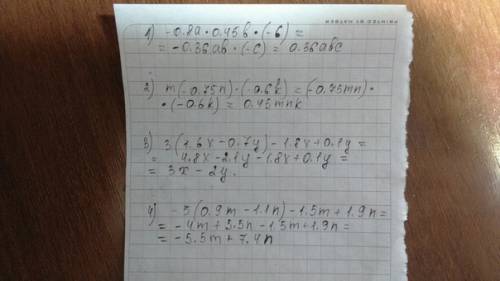 1) -0.8a • 0.45b • (-c) =
= -0.36ab • (-c) = 0.36abc
2) m(-0.75n) • (-0.6k) = (-0.75mn) •
• (-0.6k) = 0.45mnk
3) 3(1.6x - 0.7y) - 1.8x + 0.1y =
= 4.8x - 2.1y - 1.8x + 0.1y =
= 3x - 2y.
4) -5(0.9m - 1.1n) - 1.5m + 1.9n =
= -4m + 5.5n - 1.5m + 1.9n =
= -5.5m + 7.4n